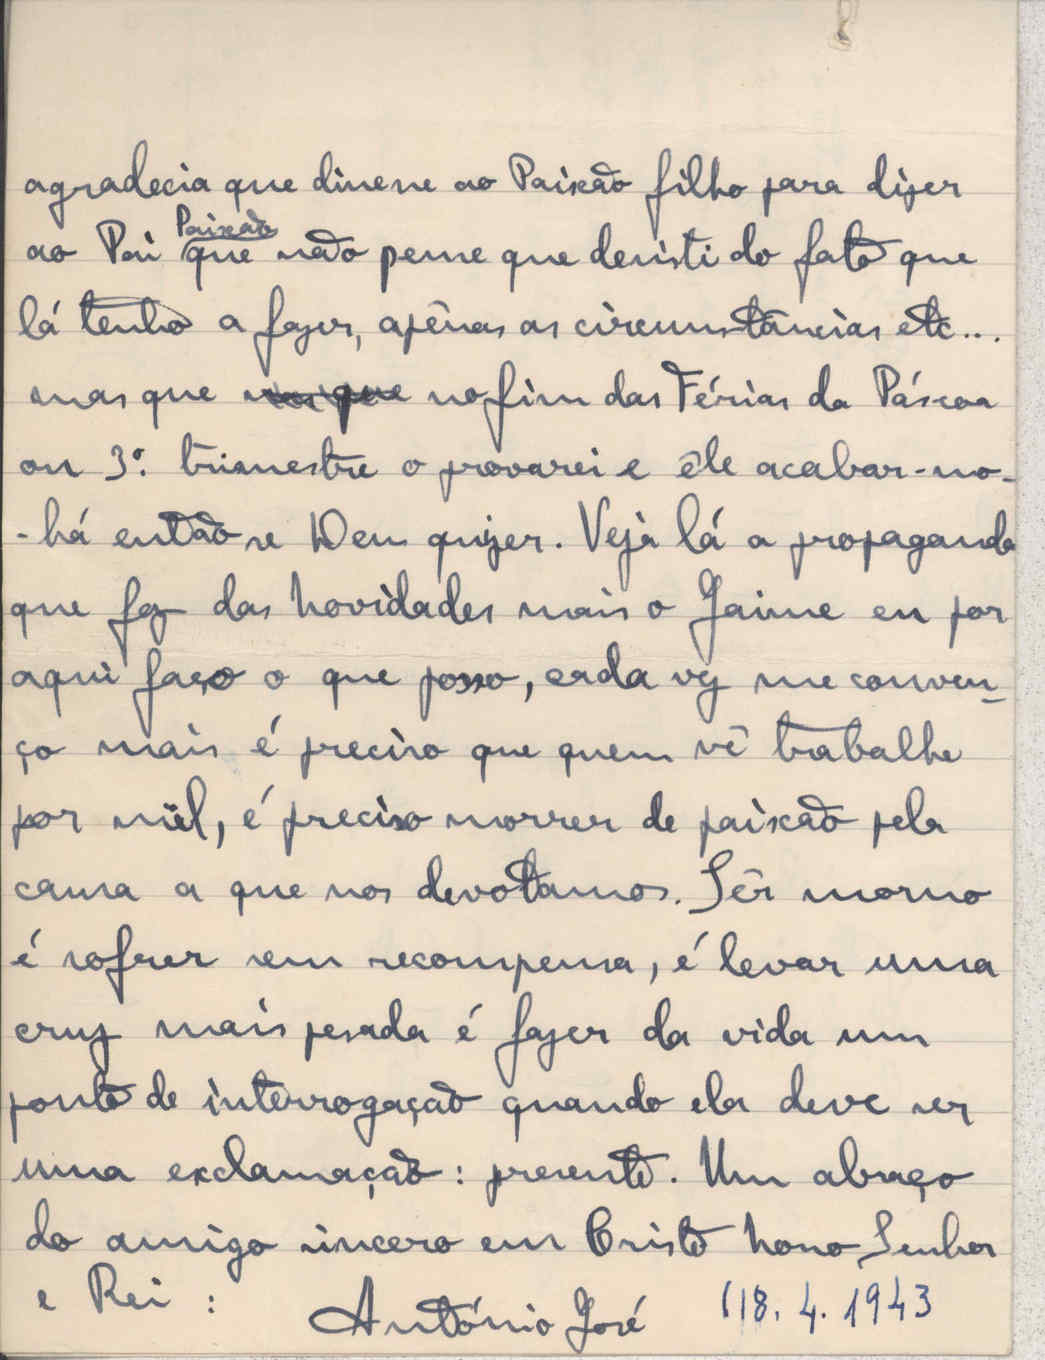 agradecia que dissesse ao Paixão filho para dizer
ao Pai Paixão que não pense que desisti do fato que
lá tenho a fazer, apênas as circunstâncias etc...
mas que no fim das Férias da Páscoa
ou 3º. trimestre o provarei e êle acabar-no-
-há então se Deus quizer. Veja lá a propaganda
que faz das Novidades mais o Jaime eu por
aqui faço o que posso, cada vez me conven-
ço mais é preciso que quem vê trabalhe
por mil, é preciso morrer de paixão pela
causa a que nos devotamos. Sêr morno
é sofrer sem recompensa, é levar uma
cruz mais pesada é fazer da vida um
ponto de interrogação quando ela deve ser
uma exclamação: presente. Um abraço
do amigo sincero em Cristo Nosso Senhor
e Rei:
António José (18.4.1943